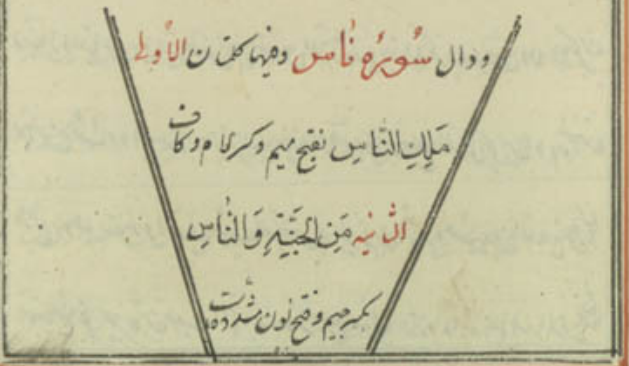 ودال سُورۀ نٰاس وفیها کلمتان الاُولی
مَلِکِ النّاسِ بفتح میم وکسر لام وکاف
الثٰانیه مِنَ الجِنَّةِ وَالنّاسِ
بکسر جیم وفتح نون مشدده